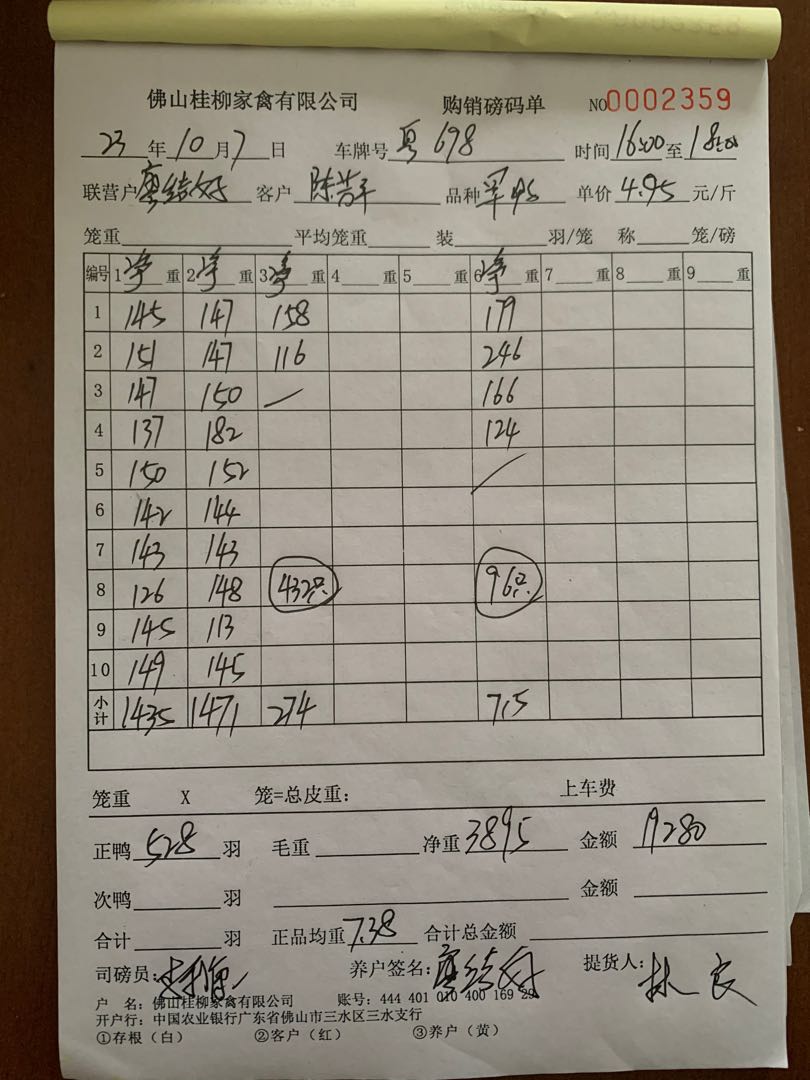 佛山桂柳家禽有限公司 购销磅码单 NO0002359
23 年 10 月 7 日 车牌号 粤 698 时间 16:00 至 18:00
联营户 廖结好 客户 单价 4.95 元/斤 品种
笼重 平均笼重 装 羽/笼 称 笼/磅
编号 1 净 重 2 净 重 3 净 重 4 重 5 重 6 净 重 7 重 8 重 9 重
1 145 147 158 179
2 151 147 116 246
3 147 150 — 166
4 137 182 124
5 150 152
6 142 144
7 143 143
8 126 148 432只 96只
9 145 113
10 149 145
小计 1435 1471 274 715
笼重 X 笼=总皮重: 上车费
正鸭 528 羽 毛重 净重 3895 金额 19280
次鸭 羽 金额
合计 羽 正品均重 7.38 合计总金额
司磅员: 养户签名: 廖结好 提货人: 林
户 名: 佛山桂柳家禽有限公司 账号: 444 401 010 400 169 29
开户行: 中国农业银行广东省佛山市三水区三水支行
①存根(白) ②客户(红) ③养户(黄)